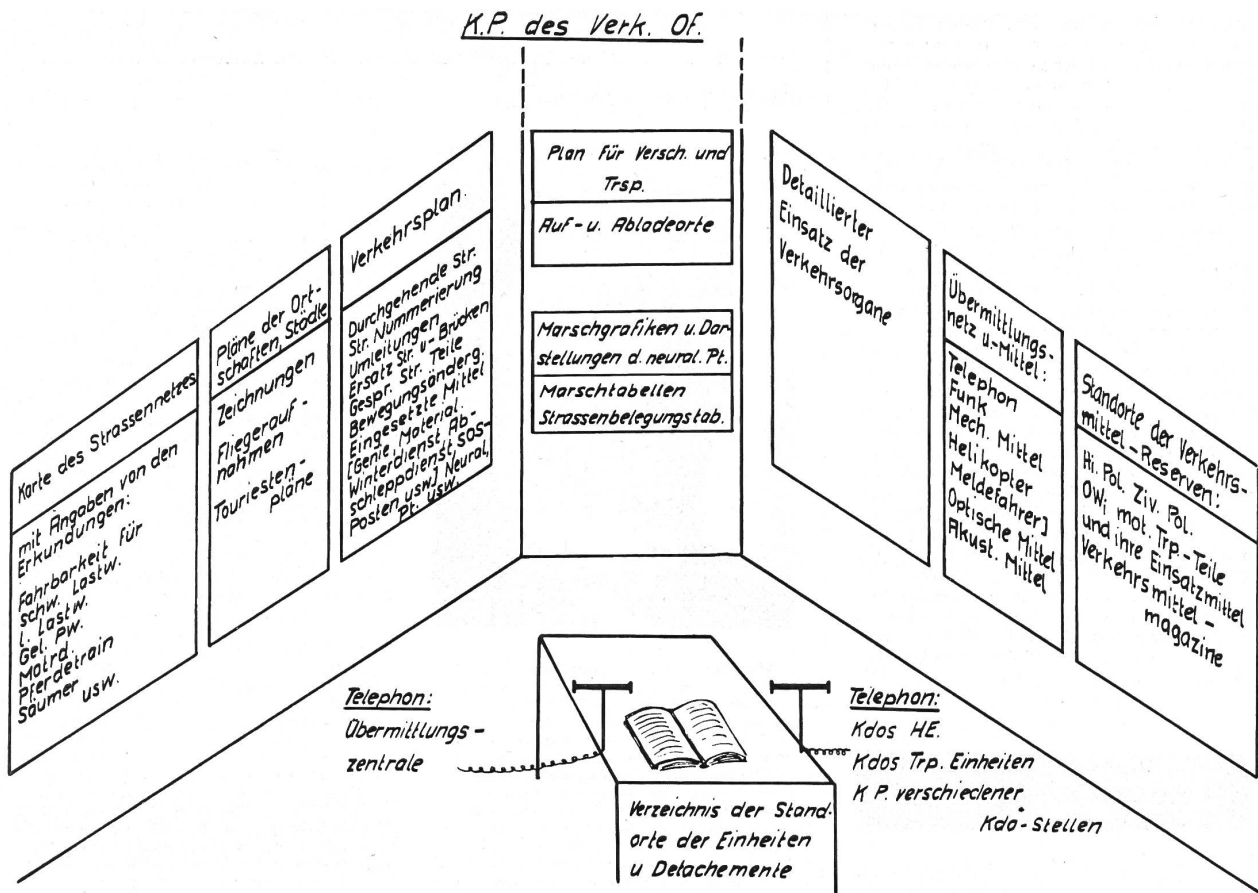 K.P. des Verk. Of.
Karte des Strassennetzes
mit Angaben von den
Erkundungen:
Fahrbarkeit für
schw. Lastw.
l. Lastw.
Gel. PW.
Motrd.
Pferdetrain
Säumer usw.
Pläne der Ort-
schaften, Städte
Zeichnungen
Fliegerauf-
nahmen
Touriesten-
pläne
Verkehrsplan.
Durchgehende Str.
Str. Nummerierung
Umleitungen
Ersatz Str. u- Brücken
Gespr. Str. Teile
Bewegungsänderg.
Eingesetzte Mittel
[Genie, Material.
Winterdienst Ab-
schleppdienst, SOS-
Posten usw.] Neural,
Pt. usw.
Plan für Versch. und
Trsp.
Auf- u. Abladeorte
Marschgrafiken u. Dar-
stellungen d. neural. Pt.
Marschtabellen
Strassenbelegungstab.
Detaillierter
Einsatz der
Verkehrsorgane
Übermittlungs-
netz u.-Mittel:
Telephon
Funk
Mech. Mittel
Helikopter
Meldefahrer]
Optische Mittel
Akust. Mittel
Standorte der Verkehrs-
mittel-Reserven:
Hi. Pol. Ziv. Pol.
OWi mot. Trp.-Teile
und ihre Einsatzmittel
Verkehrsmittel-
magazine
Telephon:
Übermittlungs-
zentrale
Telephon:
Kdos HE.
Kdos Trp. Einheiten
K P. verschiedener
Kdo-Stellen
Verzeichnis der Stand-
orte der Einheiten
u Detachemente